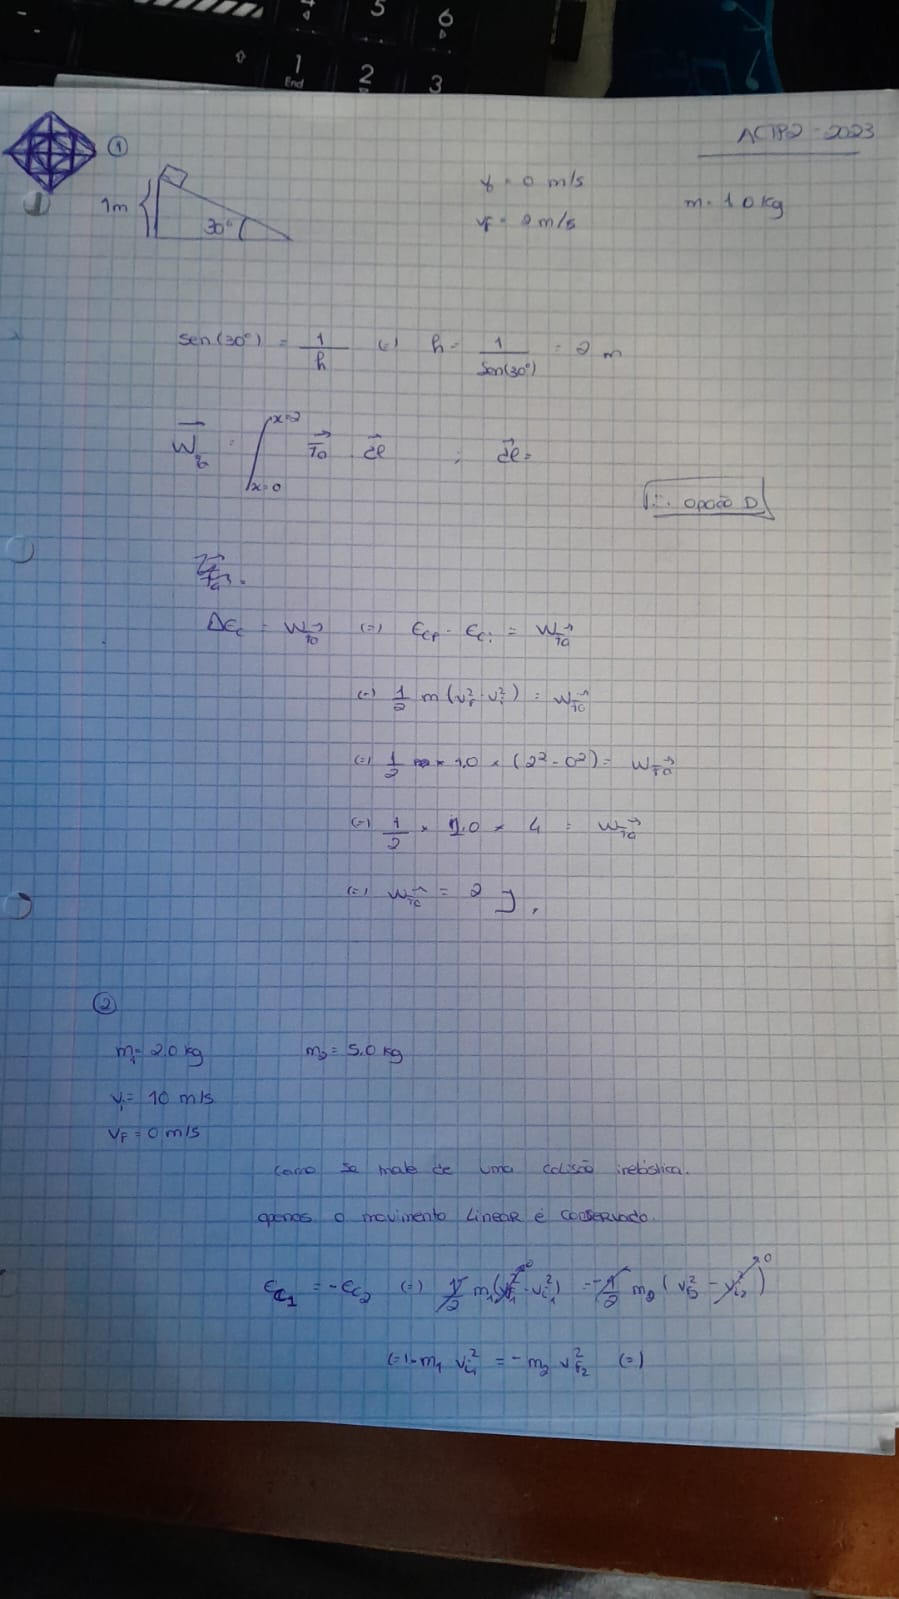 4
5
6
1
End
2
3
ACTP2 - 2023
①
1m
30°
v = 0 m/s
vf = 2 m/s
m = 1.0 kg
sen(30°) = 1/h (=) h = 1/sen(30°) = 2 m
W = ∫ x=0 x=2 dl ; dl =
∴ opção D
ΔEc = W (=) Ecf - Eci = W
(=) 1/2 m (vf² - vi²) = W
(=) 1/2 × 1.0 × (2² - 0²) = W
(=) 1/2 × 1.0 × 4 = W
(=) W = 2 J,
②
m1 = 2.0 kg
m2 = 5.0 kg
vi = 10 m/s
vF = 0 m/s
como se trate de uma colisão
apenas o movimento linear é conservado.
Ec1 = -Ec2 (=) 1/2 m1 (vf1² - vi1²) = -1/2 m2 (vf2² - vi2²)
0
0
(=) - m1 vi1² = - m2 vf2² (=)